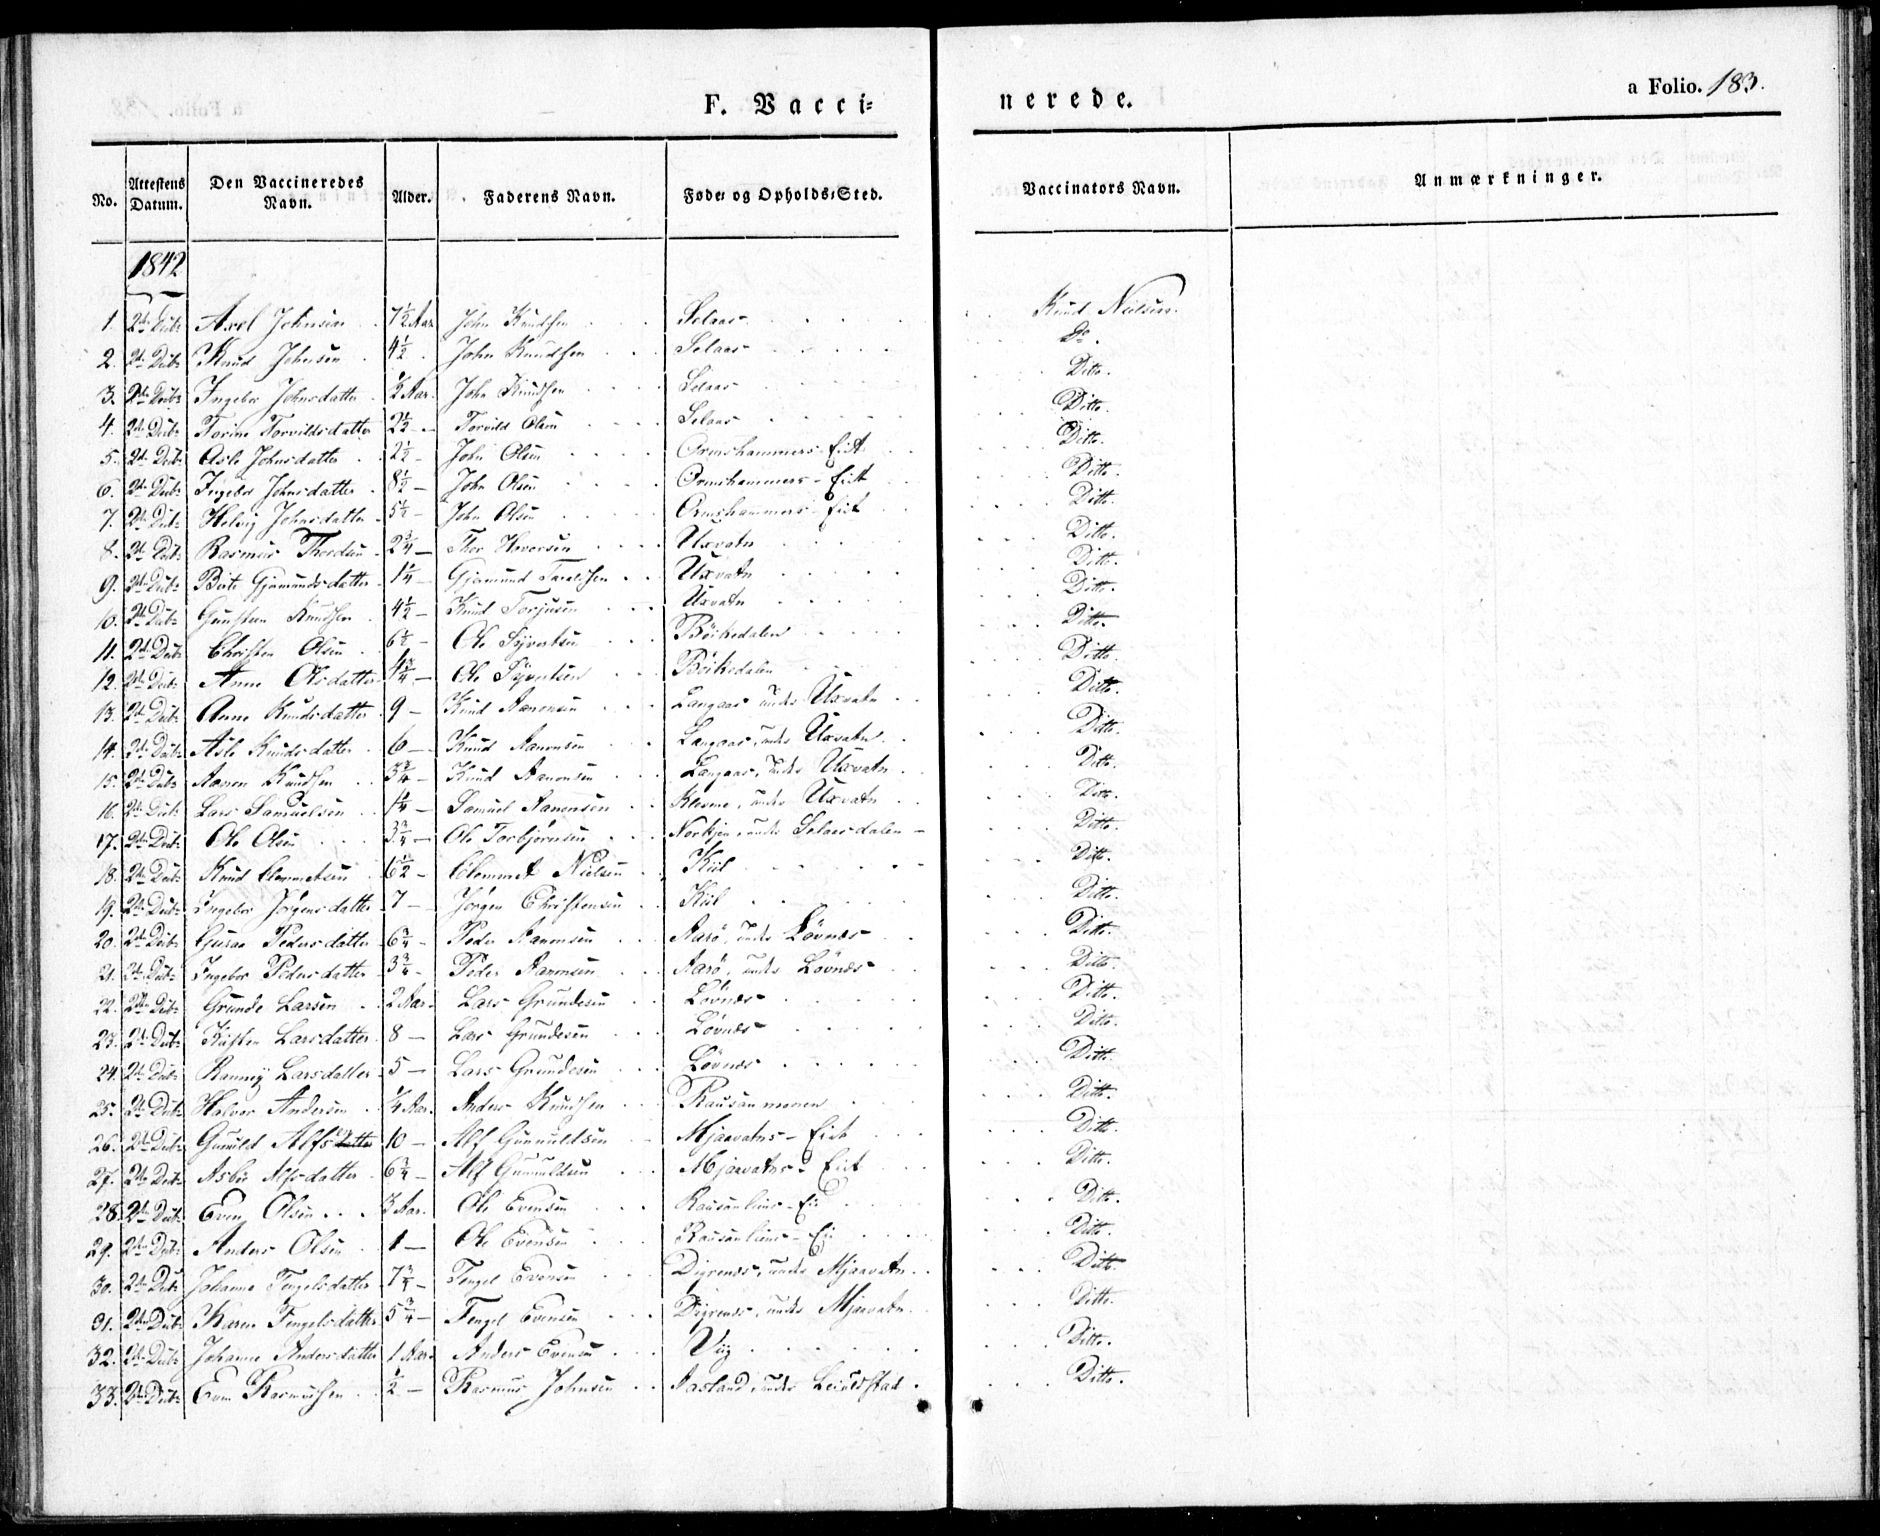 F. Vacci= nerede. a Folio. 183.
No. Attestens Datum. Den Vaccineredes Navn. Alder. Faderens Navn. Føde= og Opholds=Sted. Vaccinators Navn. Anmærkninger.
1842
1. Axel Johnsen 7½ Aar John Knudsen Selaas Knud Nielsen.
2. Knud Johnsen 4½ John Knudsen Selaas Do.
3. Ingebor Johnsdatter ½ Aar. John Knudsen Selaas Ditto.
4. Torine Torvildsdatter 2½ Torvild Olsen Selaas Ditto.
5. Asle Johnsdatter 2½ John Olsen Ormshammers-Eiet Ditto.
6. Ingebor Johnsdatter 8½ — John Olsen Ormshammers-Eiet Ditto.
7. Helvig Johnsdatter 5½ — John Olsen Ormshammers-Eiet Ditto.
8. Rasmus Thordsen 2¾ — Thor Uxvatn Ditto.
9. Berte Gjermundsdatter 1¼ — Gjermund Taraldsen Uxvatn Ditto.
10. Gunsteen Knudsen 4½ — Knud Torjusen Uxvatn Ditto.
11. Christen Olsen 6½ — Ole Syvertsen Böikedalen Ditto.
12. Anne Olsdatter 4¾ — Ole Syvertsen Böikedalen Ditto.
13. Anne Knudsdatter 9 — Knud Aanonsen Langaas under Uxvatn Ditto.
14. Asle Knudsdatter 6 — Knud Aanonsen Langaas, under Uxvatn Ditto.
15. Aanon Knudsen 3¾ — Knud Aanonsen Langaas, under Uxvatn Ditto.
16. Lars Samuelsen 1¼ — Samuel Aanonsen under Uxvatn Ditto.
17. Ole Olsen 3¾ — Ole Torbjørnsen under Selaasdalen Ditto.
18. Knud Clemmetsen 6½ — Clemmet Nielsen Kiil Ditto.
19. Ingebor Jörgensdatter 7 — Jörgen Christensen Kiil Ditto.
20. Guroe Pedersdatter 6¾ — Peder Aanonsen Aarö, under Lövnæs Ditto.
21. Ingebor Pedersdatter 3¾ — Peder Aanonsen Aarö, under Lövnæs Ditto.
22. Grunde Larsen 2 Aar. Lars Grundesen Lövnæs Ditto.
23. Kirsten Larsdatter 8 — Lars Grundesen Lövnæs Ditto.
24. Larsdatter 5 — Lars Grundesen Lövnæs Ditto.
25. Halvor Andersen ¼ Aar. Anders Knudsen Rausanmonen Ditto.
26. Gunuld Alfs 10 — Alf Gunnuldsen Mjaavatns-Eiet Ditto.
27. Asbör Alfsdatter 6¾ — Alf Gunnuldsen Mjaavatns-Eiet Ditto.
28. Even Olsen 3 Aar. Ole Evensen Ditto.
29. Anders Olsen 1 — Ole Evensen Ditto.
30. Johanne Tengelsdatter 7¾ — Tengel Evensen Digrenæs, under Mjaavatn Ditto.
31. Karen Tengelsdatter 5¾ — Tengel Evensen Digrenæs, under Mjaavatn Ditto.
32. Johanne Andersdatter 1 Aar. Anders Evensen Viig Ditto.
33. Even Rasmussen ½ — Rasmus Johnsen Aasland, under Ditto.